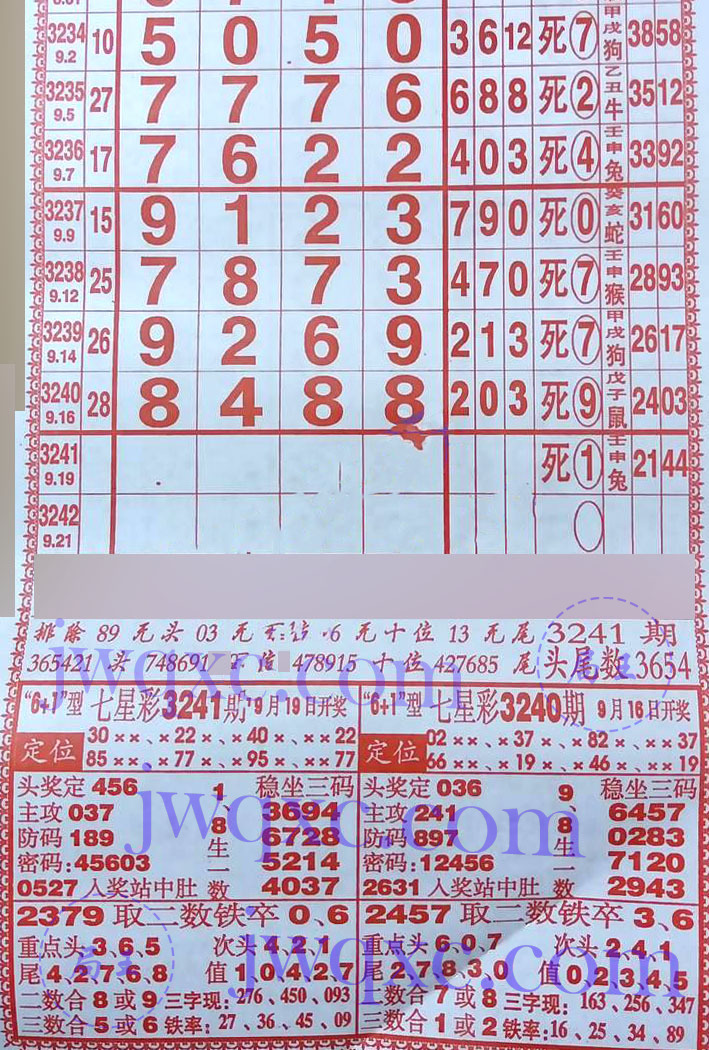 3234 9.2 10 5 0 5 0 3 6 12 死⑦ 甲戌狗 3858
3235 9.5 27 7 7 7 6 6 8 8 死② 乙丑牛 3512
3236 9.7 17 7 6 2 2 4 0 3 死④ 壬申兔 3392
3237 9.9 15 9 1 2 3 7 9 0 死⓪ 癸亥蛇 3160
3238 9.12 25 7 8 7 3 4 7 0 死⑦ 壬申猴 2893
3239 9.14 26 9 2 6 9 2 1 3 死⑦ 甲戌狗 2617
3240 9.16 28 8 4 8 8 2 0 3 死⑨ 戊子鼠 2403
3241 9.19 死① 壬申兔 2144
3242 9.21
排除 89 无头 03 无 6 无十位 13 无尾 3241 期
365421 头 748691 百位 478915 十位 427685 尾 头尾数 3654
"6+1"型 七星彩3241期 9月19日开奖
定位
30××、×22×、×40×、××22
85××、×77×、×95×、××77
头奖定 456 1、8生一数 稳坐三码
主攻 037 3694
防码 189 6728
密码:45603 5214
0527 入奖站中肚 4037
2379 取二数铁卒 0、6
重点头 3,6,5 次头 4,2,1
尾 4,2,7,6,8 值 1,0,4,2,7
二数合 8 或 9 三字现: 276、450、093
三数合 5 或 6 铁率: 27、36、45、09
"6+1"型 七星彩3240期 9月16日开奖
定位
02××、×37×、×82×、××37
66××、×19×、×46×、××19
头奖定 036 9、8生一数 稳坐三码
主攻 241 6457
防码 897 0283
密码:12456 7120
2631 入奖站中肚 2943
2457 取二数铁卒 3、6
重点头 6,0,7 次头 2,4,1
尾 2,7,8,3,0 值 0,2,3,4,5
二数合 7 或 8 三字现: 163、256、347
三数合 1 或 2 铁率: 16、25、34、89
jwqxc.com
jwqxc.com
jwqxc.com
局王
局王